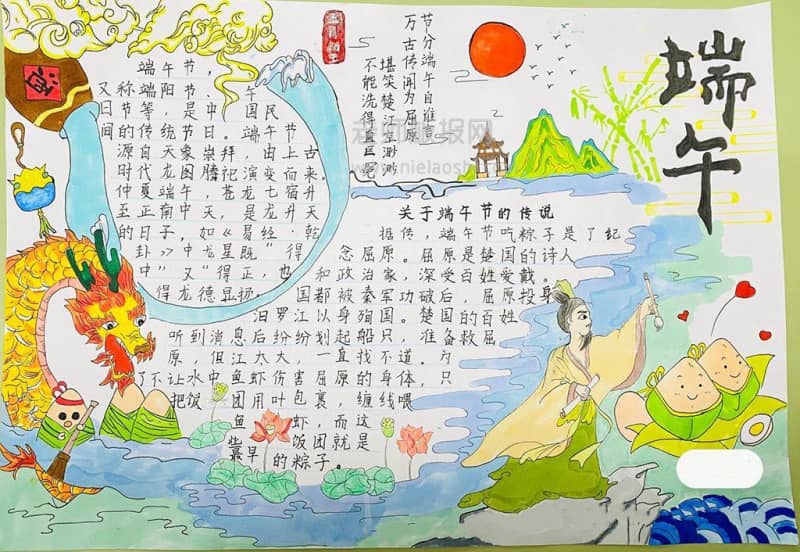 端午
节分端午自谁言
万古传闻为屈原
堪笑楚江空渺渺
不能洗得直臣冤
端午节，
又称端阳节、 午
日节等，是中 国民
间的传统节日。端午节
源自天象崇拜，由上古
时代龙图腾祀演变而来。
仲夏端午，苍龙七宿升
至正南中天，是龙升天
的日子，如《易经·乾
卦》中龙星既"得
中"又"得正，也
得龙德显扬。
关于端午节的传说
据传，端午节吃粽子是了纪
念屈原。屈原是楚国的诗人
和政治家，深受百姓爱戴。
国都被秦军功破后，屈原投身
汨罗江以身殉国。楚国的百姓
听到消息后纷纷划起船只，准备救屈
原，但江水大，一直找不道。为
了不让水中鱼虾伤害屈原的身体，只
把饭 团用叶包裹，缠线喂
鱼 虾，而这
些 饭团就是
最早的粽子。
酒